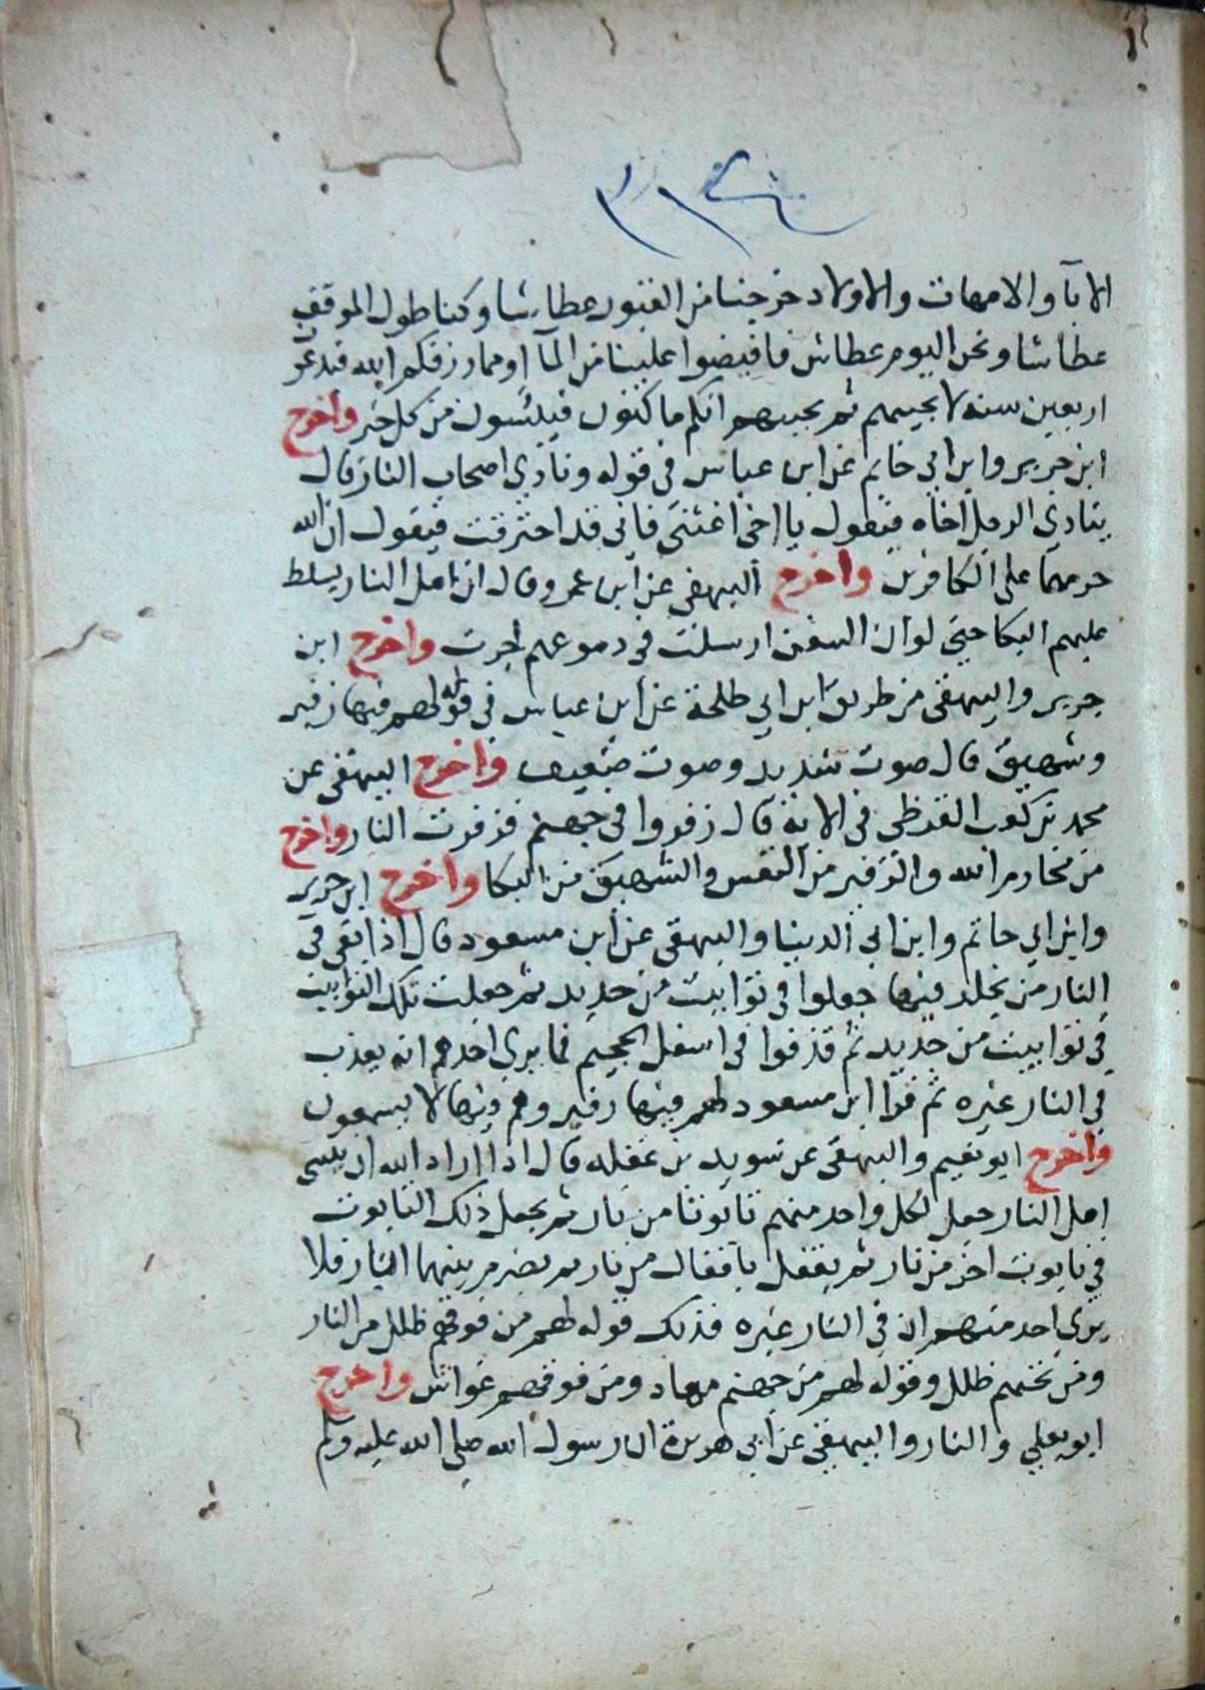 الابآ والامهات والاولاد خرجنا من القبور عطاشا وكنا طول الموقف
عطاشا ونحن اليوم عطاش فافيضوا علينا من المآ او مما رزقكم الله فيدعو
اربعين سنة لا يجيبهم ثم يجيبهم انكم ماكثون فييئسون من كل خير واخرج
ابن جرير وابن ابي حاتم عن ابن عباس في قوله ونادي اصحاب النار قال
ينادي الرجل اخاه فيقول يا اخي اغثني فاني قد احترقت فيقول ان الله
حرمهما علي الكافرين واخرج البيهقي عن ابن عمرو قال ان اهل النار يسلط
عليهم البكا حتي لو ان السفن ارسلت في دموعهم لجرت واخرج ابن
جرير والبيهقي من طريق ابن ابي طلحة عن ابن عباس في قوله لهم فيها زفير
وشهيق قال صوت شديد وصوت ضعيف واخرج البيهقي عن
محمد بن كعب القرظي في الاية قال زفروا في جهنم فزفرت النار واخرج
من محارم الله والزفير من النفس والشهيق من البكا واخرج ابن جرير
وابن ابي حاتم وابن ابي الدينا والبيهقي عن ابن مسعود قال اذا بقي في
النار من يخلد فيها جعلوا في توابيت من حديد ثم جعلت تلك التوابيت
في توابيت من حديد ثم قذفوا في اسفل الجحيم فما يري احدهم انه يعذب
في النار غيره ثم قرا ابن مسعود لهم فيها زفير وهم فيها لا يسمعون
واخرج ابو نعيم والبيهقي عن سويد بن غفله قال اذا اراد الله ان ينسي
اهل النار جعل لكل واحد منهم تابوتا من نار ثم يجعل ذلك التابوت
في تابوت اخر من نار ثم يقفل باقفال من نار ثم يضرم بينهما النار فلا
يري احد منهم ان في النار غيره فذلك قوله لهم من فوقهم ظلل من النار
ومن تحتهم ظلل وقوله لهم من جهنم مهاد ومن فوقهم غواش واخرج
ابو يعلي والنار والبيهقي عن ابي هريرة ان رسول الله صلي الله عليه وسلم